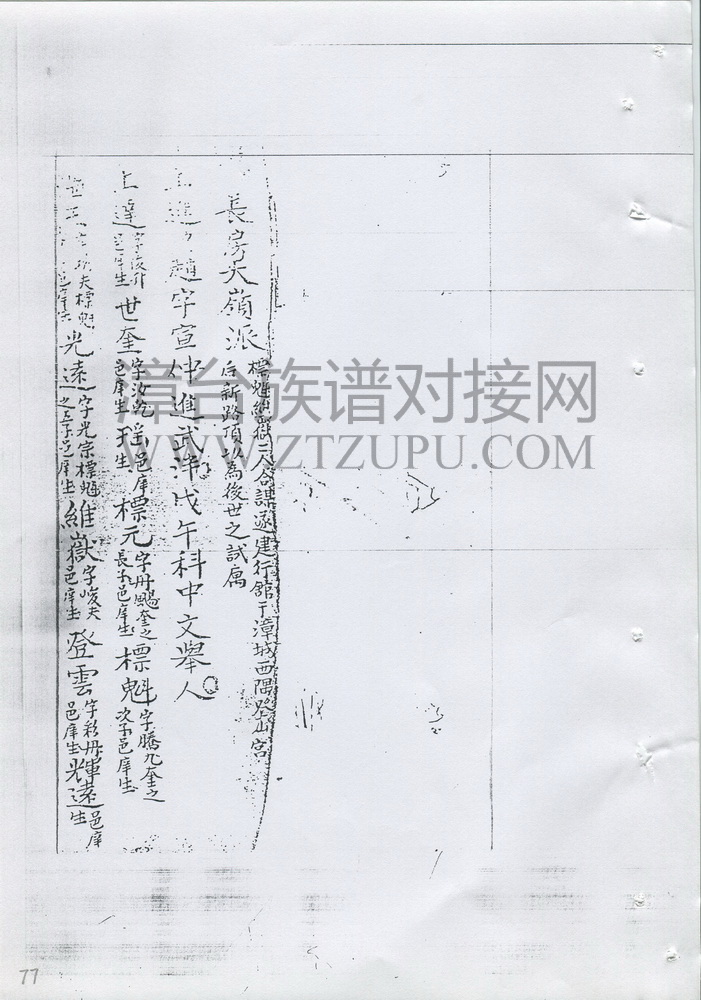 長房大嶺派
標魁維嶽二人合謀遂建行舘于漳城西隅登山宮
后新路頂以為後世之試寓
趙字宣仲進武泮戊午科中文舉人
上達字俊升邑庠生世奎字汝乾邑庠生瑤邑庠生標元字丹颺奎之長子邑庠生標魁字騰九奎之次子邑庠生
光遠字光宗標魁之子邑庠生維嶽字峻夫邑庠生登雲字彩丹邑庠生輝遠邑庠生
漳台族谱对接网
WWW.ZTZUPU.COM
77